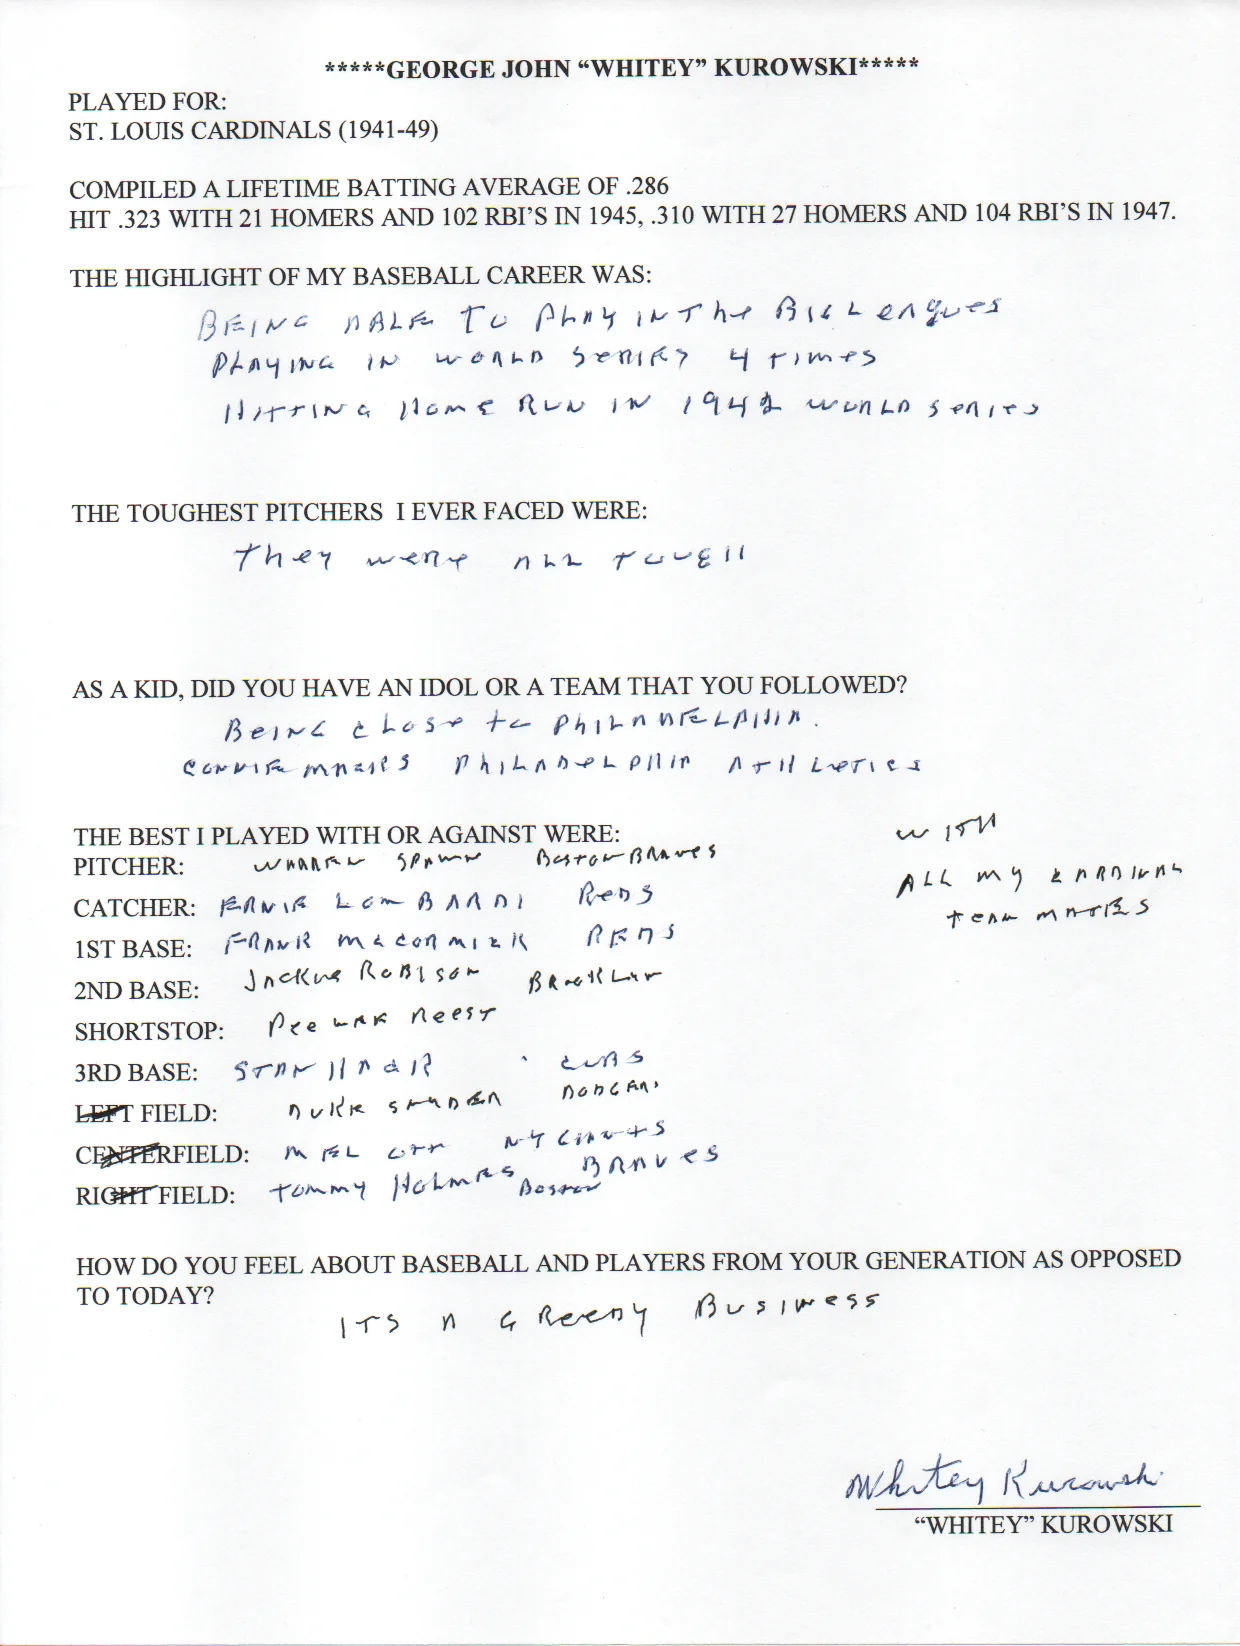 *****GEORGE JOHN “WHITEY” KUROWSKI*****
PLAYED FOR:
ST. LOUIS CARDINALS (1941-49)
COMPILED A LIFETIME BATTING AVERAGE OF .286
HIT .323 WITH 21 HOMERS AND 102 RBI’S IN 1945, .310 WITH 27 HOMERS AND 104 RBI’S IN 1947.
THE HIGHLIGHT OF MY BASEBALL CAREER WAS:
BEING ABLE TO PLAY IN The BIG LEAgues
PLAYING IN WORLD SERIES 4 TIMES
HITTING HOME RUN IN 1942 WORLD SERIES
THE TOUGHEST PITCHERS I EVER FACED WERE:
They were ALL TOUGH
AS A KID, DID YOU HAVE AN IDOL OR A TEAM THAT YOU FOLLOWED?
BEING CLOSE to PHILADELPHIA.
CONNIE MACKS PHILADELPHIA ATHLETICS
THE BEST I PLAYED WITH OR AGAINST WERE:
WITH
ALL MY CARDINAL
TEAM MATES
PITCHER: WARREN SPAHN BOSTON BRAVES
CATCHER: ERNIE LOMBARDI REDS
1ST BASE: FRANK McCORMICK REDS
2ND BASE: JACKIE ROBISON BROOKLYN
SHORTSTOP: Pee WEE REESE
3RD BASE: STAN HACK CUBS
LEFT FIELD: DUKE SNYDER DODGERS
CENTERFIELD: MEL OTT NY GIANTS
RIGHT FIELD: TOMMY HOLMES BOSTON BRAVES
HOW DO YOU FEEL ABOUT BASEBALL AND PLAYERS FROM YOUR GENERATION AS OPPOSED
TO TODAY?
ITS A GREEDY BUSINESS
Whitey Kurowski
“WHITEY” KUROWSKI